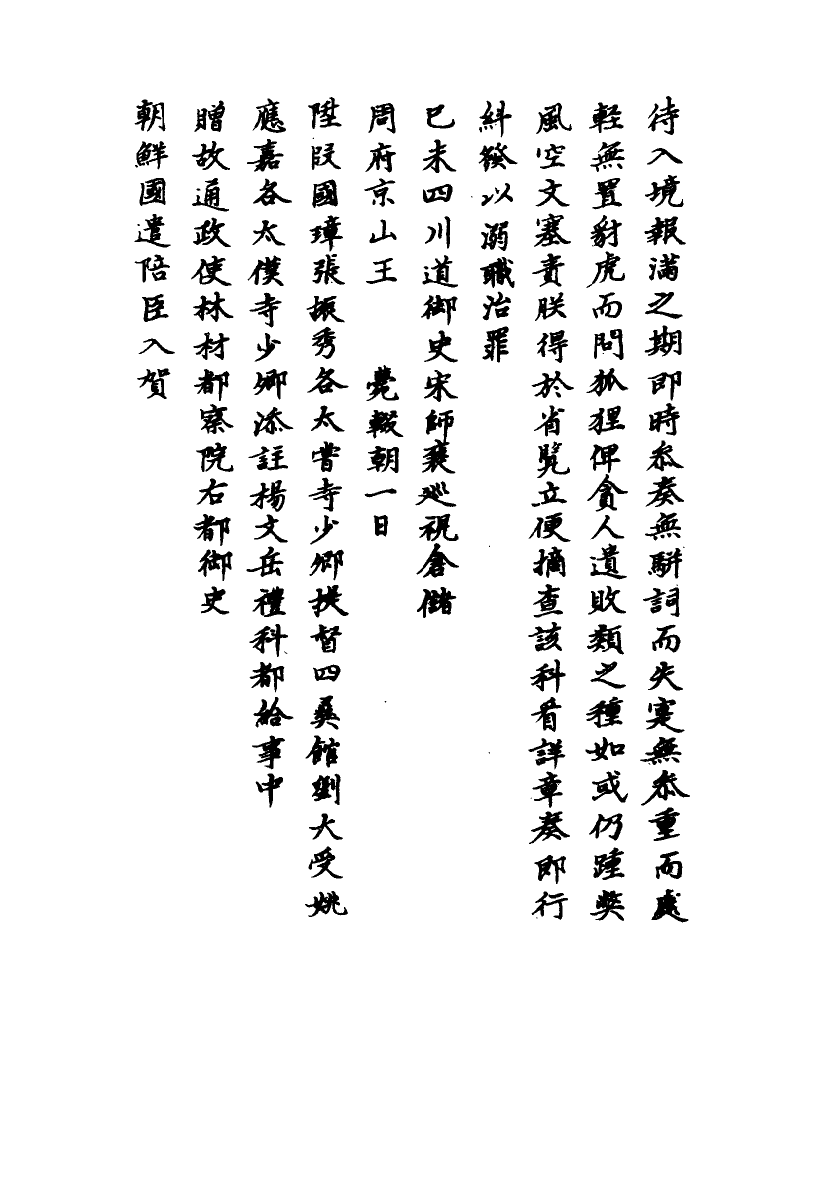 待入境報滿之期即時叅奏無駢詞而失寔無叅重而處
輕無置豺虎而問狐狸俾貪人遺敗類之種如或仍踵獘
風空文塞責朕得於省覽立便摘查該科看詳章奏即行
糾發以溺職治罪
己未四川道御史宋師襄巡視倉儲
周府京山王　　薨輟朝一日
陞段國璋張振秀各太常寺少卿提督四彝館劉大受姚
應嘉各太僕寺少卿添註楊文岳禮科都給事中
贈故通政使林材都察院右都御史
朝鮮國遣陪臣入賀